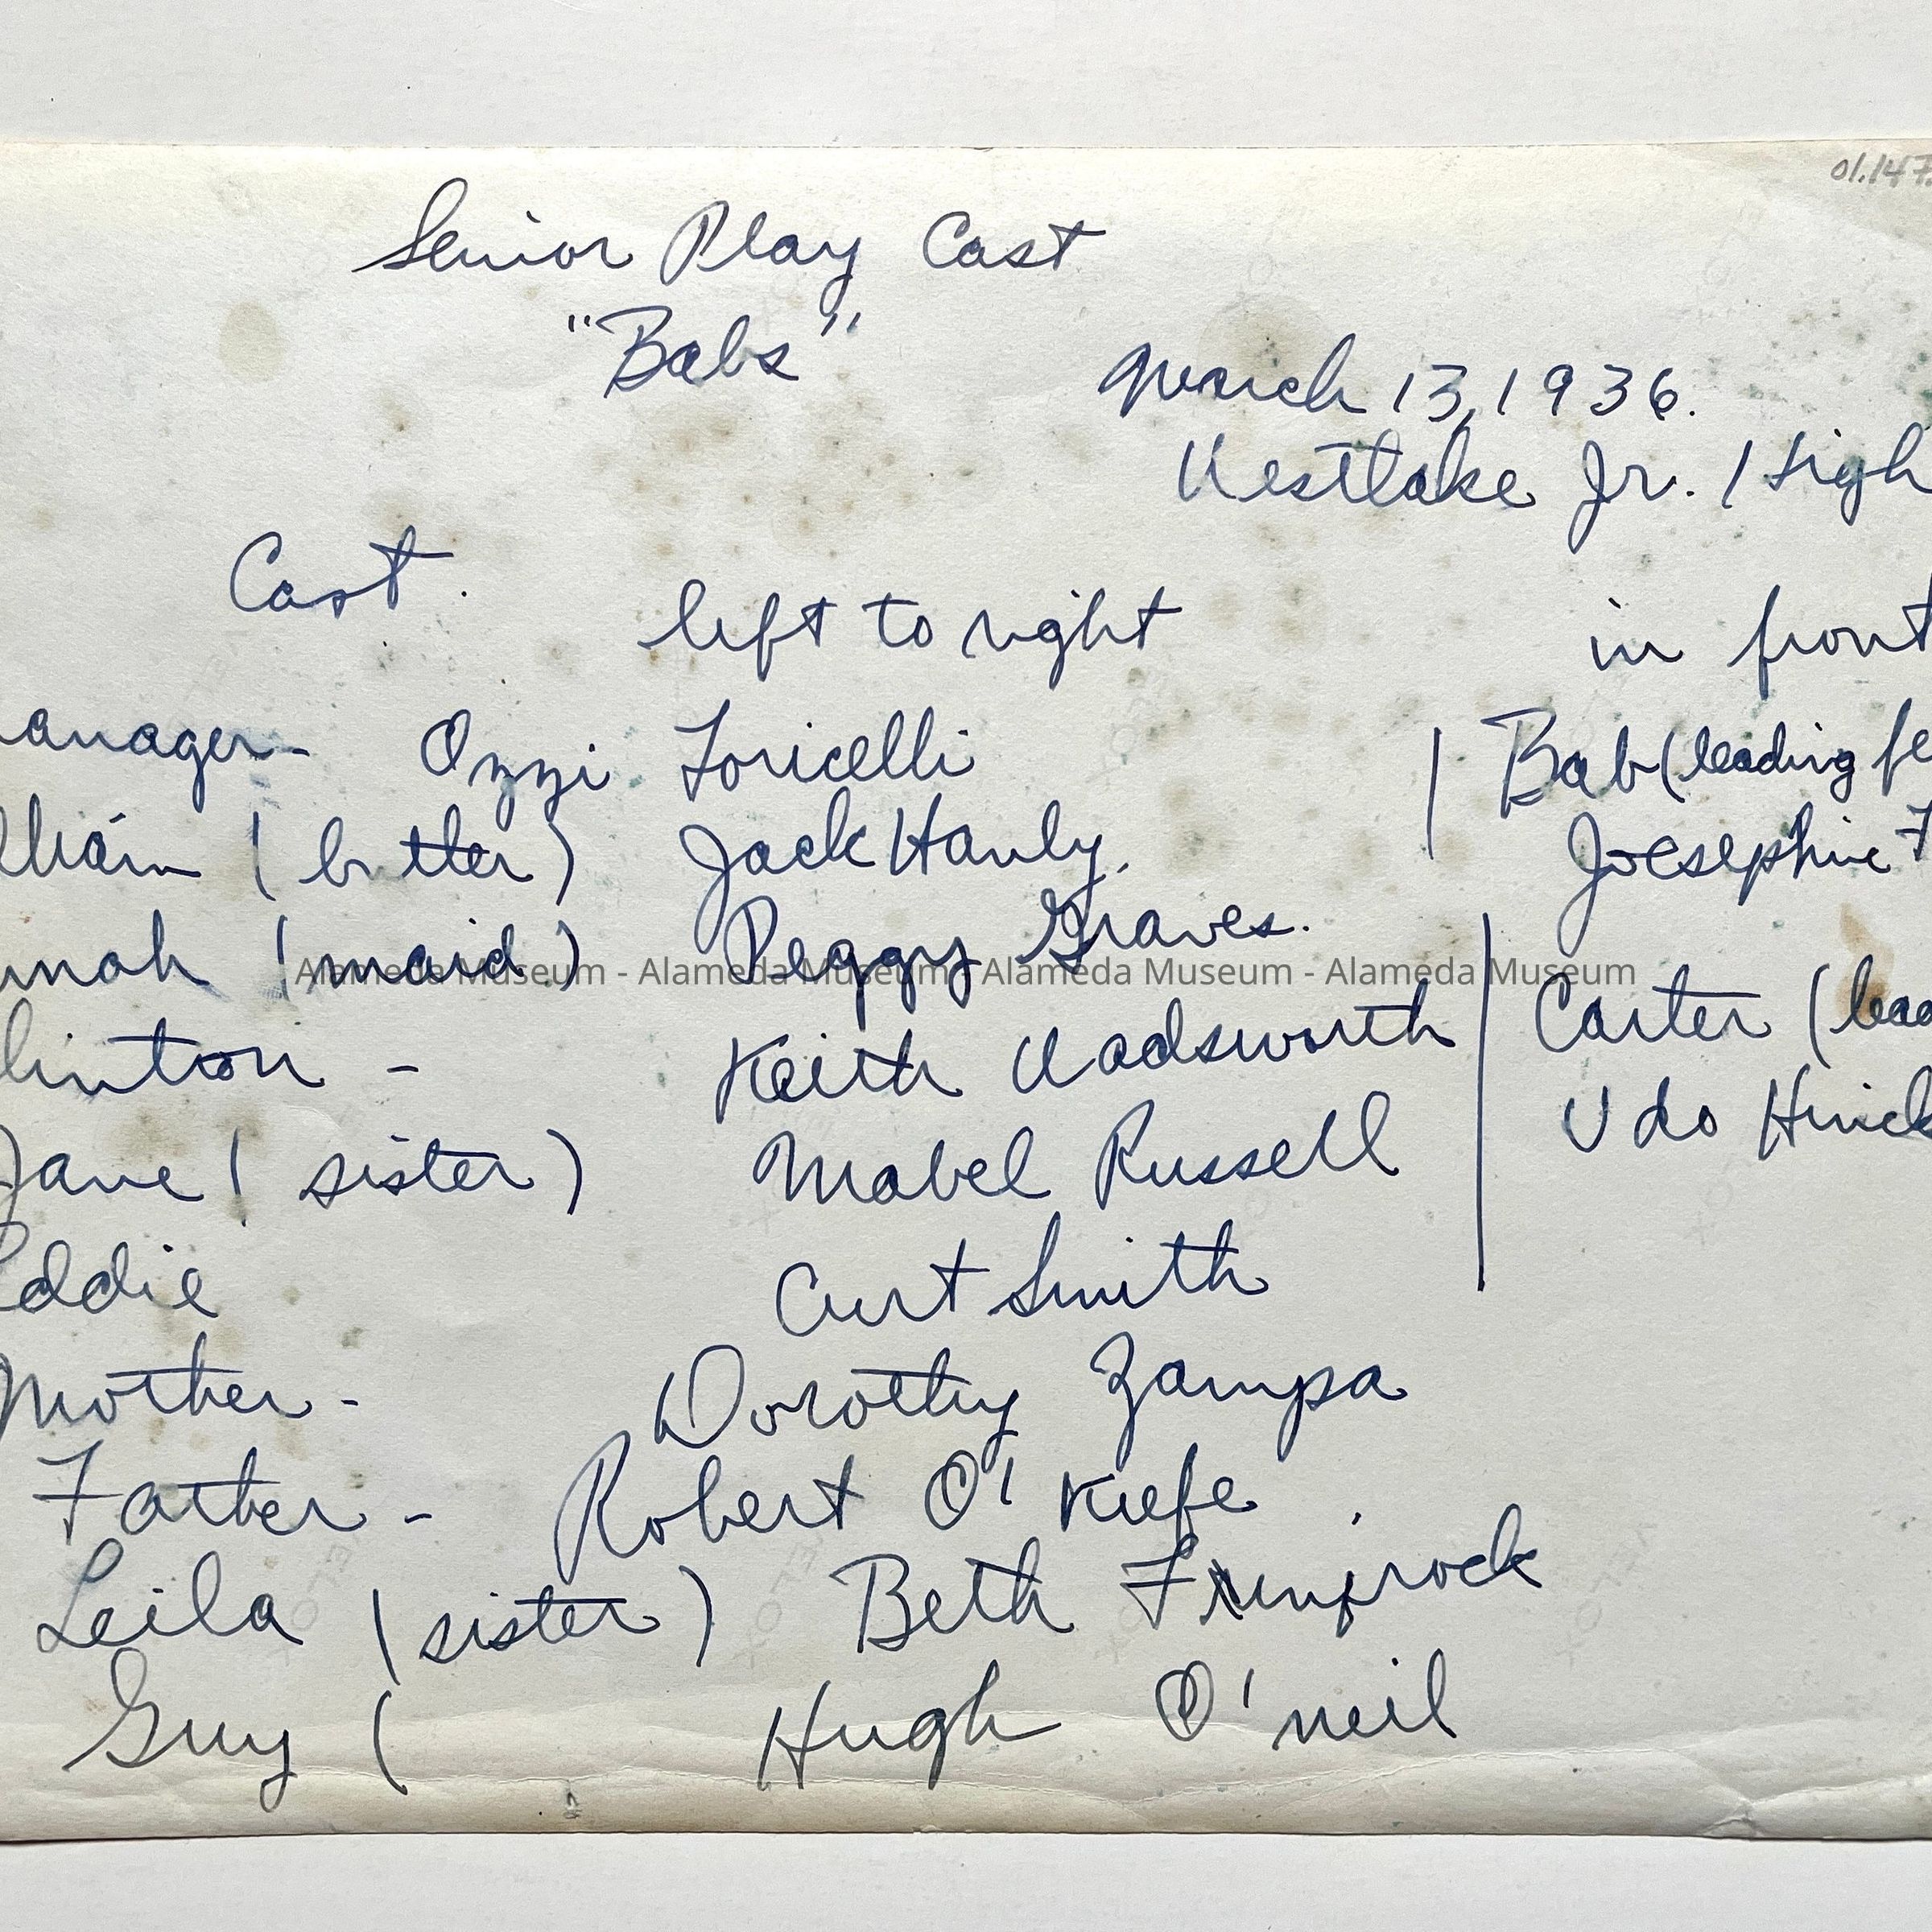 01.147.
Senior Play Cast
"Babs"
March 13, 1936.
Westlake Jr. High
Cast.
left to right
in front
anager - Ozzi Toricelli
Bab (leading fe
lliam (butler) Jack Hanly.
Joesephine F
nnah (maid) Peggy Graves.
Alameda Museum - Alameda Museum - Alameda Museum - Alameda Museum
linton - Keith Wadsworth
Carter (lead
Jane (sister) Mabel Russell
Udo Hinck
Eddie Curt Smith
Mother - Dorothy Zampa
Father - Robert O'Kiefe
Leila (sister) Beth
Guy ( Hugh O'neil